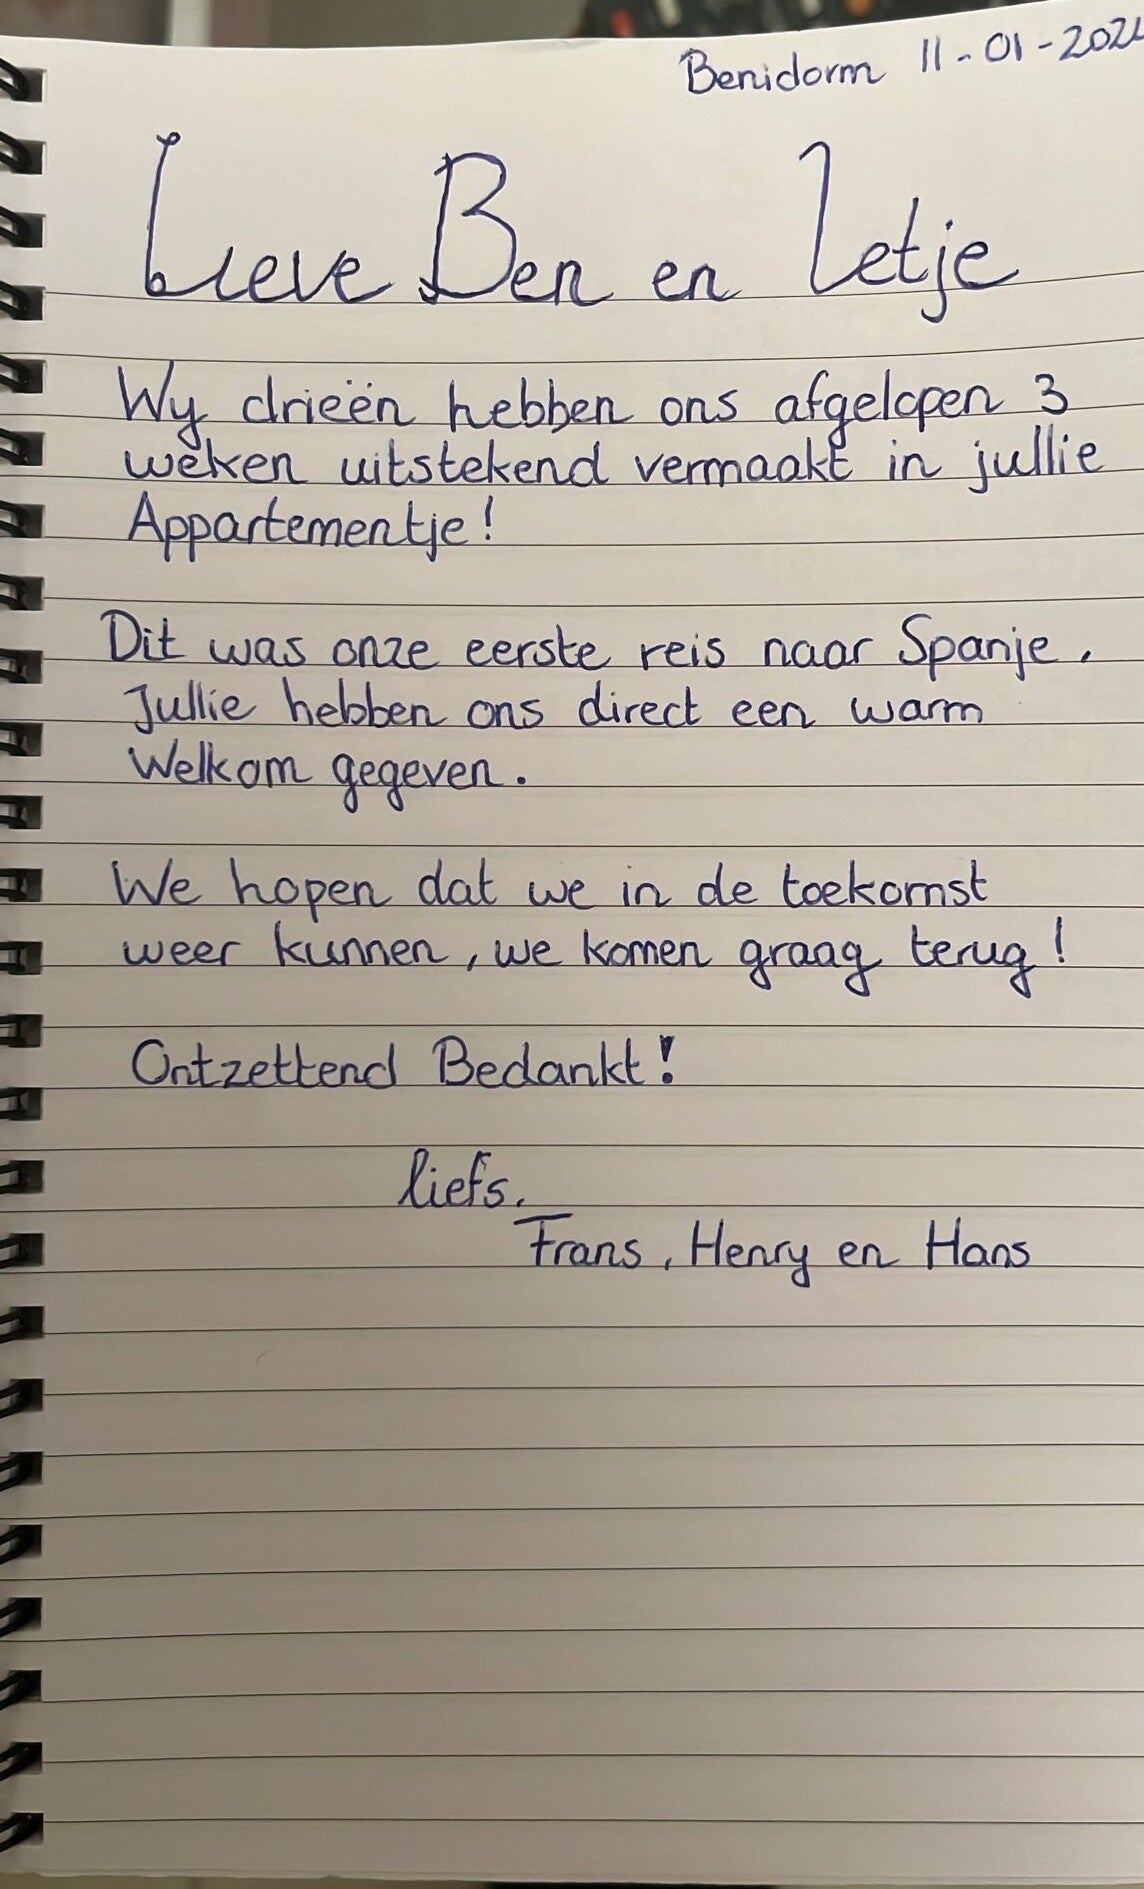 Benidorm 11-01-202
Lieve Ben en Ietje
Wy drieën hebben ons afgelopen 3
weken uitstekend vermaakt in jullie
Appartementje!
Dit was onze eerste reis naar Spanje.
Jullie hebben ons direct een warm
Welkom gegeven.
We hopen dat we in de toekomst
weer kunnen, we komen graag terug!
Ontzettend Bedankt!
liefs,
Frans, Henry en Hans